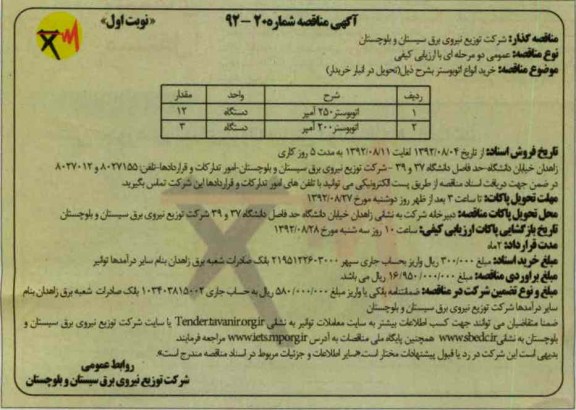 آگهی مناقصه شماره ۲۰ - ۹۲
«نوبت اول»
مناقصه گذار: شرکت توزیع نیروی برق سیستان و بلوچستان
نوع مناقصه: عمومی دو مرحله ای با ارزیابی کیفی
موضوع مناقصه: خرید انواع اتوبوستر بشرح ذیل(تحویل در انبار خریدار)
ردیف شرح واحد مقدار
۱ اتوبوستر ۲۵۰ آمپر دستگاه ۱۲
۲ اتوبوستر ۲۰۰ آمپر دستگاه ۳
تاریخ فروش اسناد: از تاریخ ۱۳۹۲/۰۸/۰۴ لغایت ۱۳۹۲/۰۸/۱۱ به مدت ۵ روز کاری
زاهدان خیابان دانشگاه-حد فاصل دانشگاه ۳۷ و ۳۹ - شرکت توزیع نیروی برق سیستان و بلوچستان-امور تدارکات و قراردادها-تلفن: ۸۰۲۷۱۵۵ و ۸۰۲۷۰۱۲
در ضمن جهت دریافت اسناد مناقصه از طریق پست الکترونیکی می توانید با تلفن های امور تدارکات و قراردادها این شرکت تماس بگیرید.
مهلت تحویل پاکات: تا ساعت ۳ بعد از ظهر روز دوشنبه مورخ ۱۳۹۲/۰۸/۲۷
محل تحویل پاکات مناقصه: دبیرخانه شرکت به نشانی زاهدان خیابان دانشگاه حد فاصل دانشگاه ۳۷ و ۳۹ شرکت توزیع نیروی برق سیستان و بلوچستان
تاریخ بازگشایی پاکات ارزیابی کیفی: ساعت ۱۰ روز سه شنبه مورخ ۱۳۹۲/۰۸/۲۸
مدت قرارداد: ۲ماه
مبلغ خرید اسناد: مبلغ ۳۰۰/۰۰۰ ریال واریز بحساب جاری سپهر ۲۱۹۵۱۲۲۶۰۳۰۰۰ بانک صادرات شعبه برق زاهدان بنام سایر درآمدها توانیر
مبلغ برآوردی مناقصه: مبلغ ۱۶/۹۵۰/۰۰۰/۰۰۰ ریال می باشد
مبلغ و نوع تضمین شرکت در مناقصه: ضمانتنامه بانکی یا واریز مبلغ ۵۸۰/۰۰۰/۰۰۰ ریال به حساب جاری ۰۱۰۳۴۰۳۸۱۵۰۰۲ بانک صادرات شعبه برق زاهدان بنام
سایر درآمدها شرکت توزیع نیروی برق سیستان و بلوچستان
ضمنا متقاضیان می توانند جهت کسب اطلاعات بیشتر به سایت معاملات توانیر به نشانی Tender.tavanir.org.ir یا سایت شرکت توزیع نیروی برق سیستان و
بلوچستان به نشانی www.sbedc.ir همچنین پایگاه ملی مناقصات به آدرس www.iets.mporg.ir مراجعه فرمایند.
بدیهی است این شرکت در رد یا قبول پیشنهادات مختار است.«سایر اطلاعات و جزئیات مربوط در اسناد مناقصه مندرج است».
روابط عمومی
شرکت توزیع نیروی برق سیستان و بلوچستان